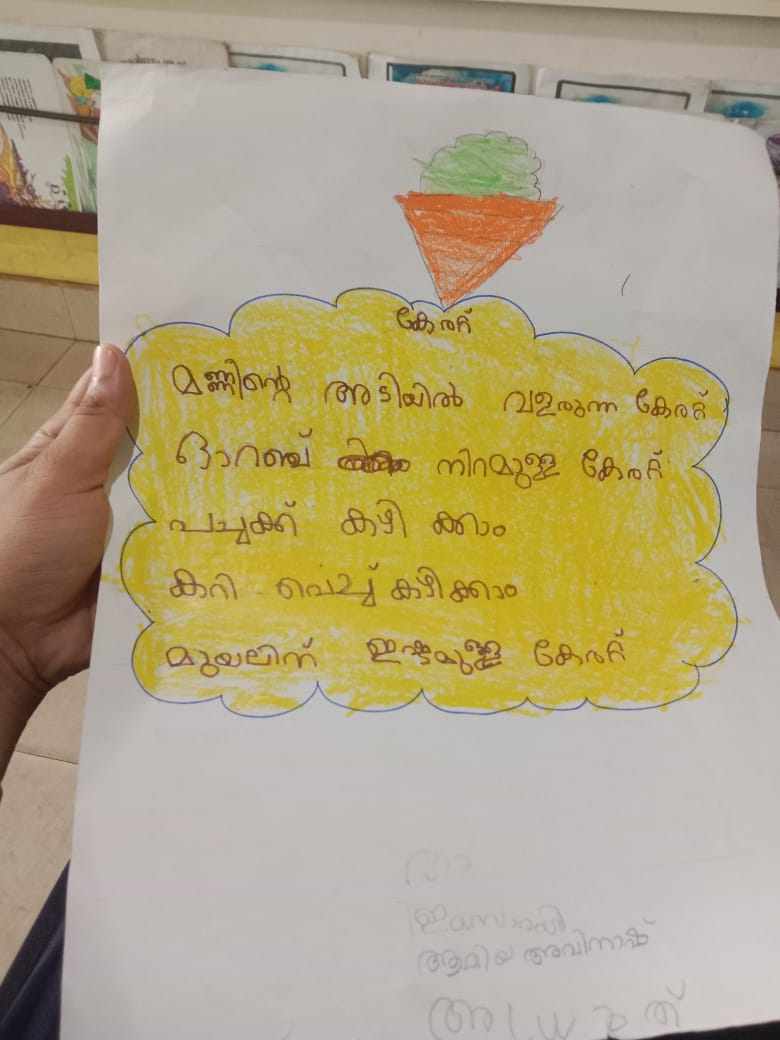 കേരറ്റ്
മണ്ണിന്റെ അടിയിൽ വളരുന്ന കേരറ്റ്
ഓറഞ്ച് നിറമുള്ള കേരറ്റ്
പച്ചക്ക് കഴി ക്കാം
കറി വെച്ച് കഴിക്കാം
മുയലിന് ഇഷ്ടമുള്ള കേരറ്റ്
ആമിയ അവിനാഷ്